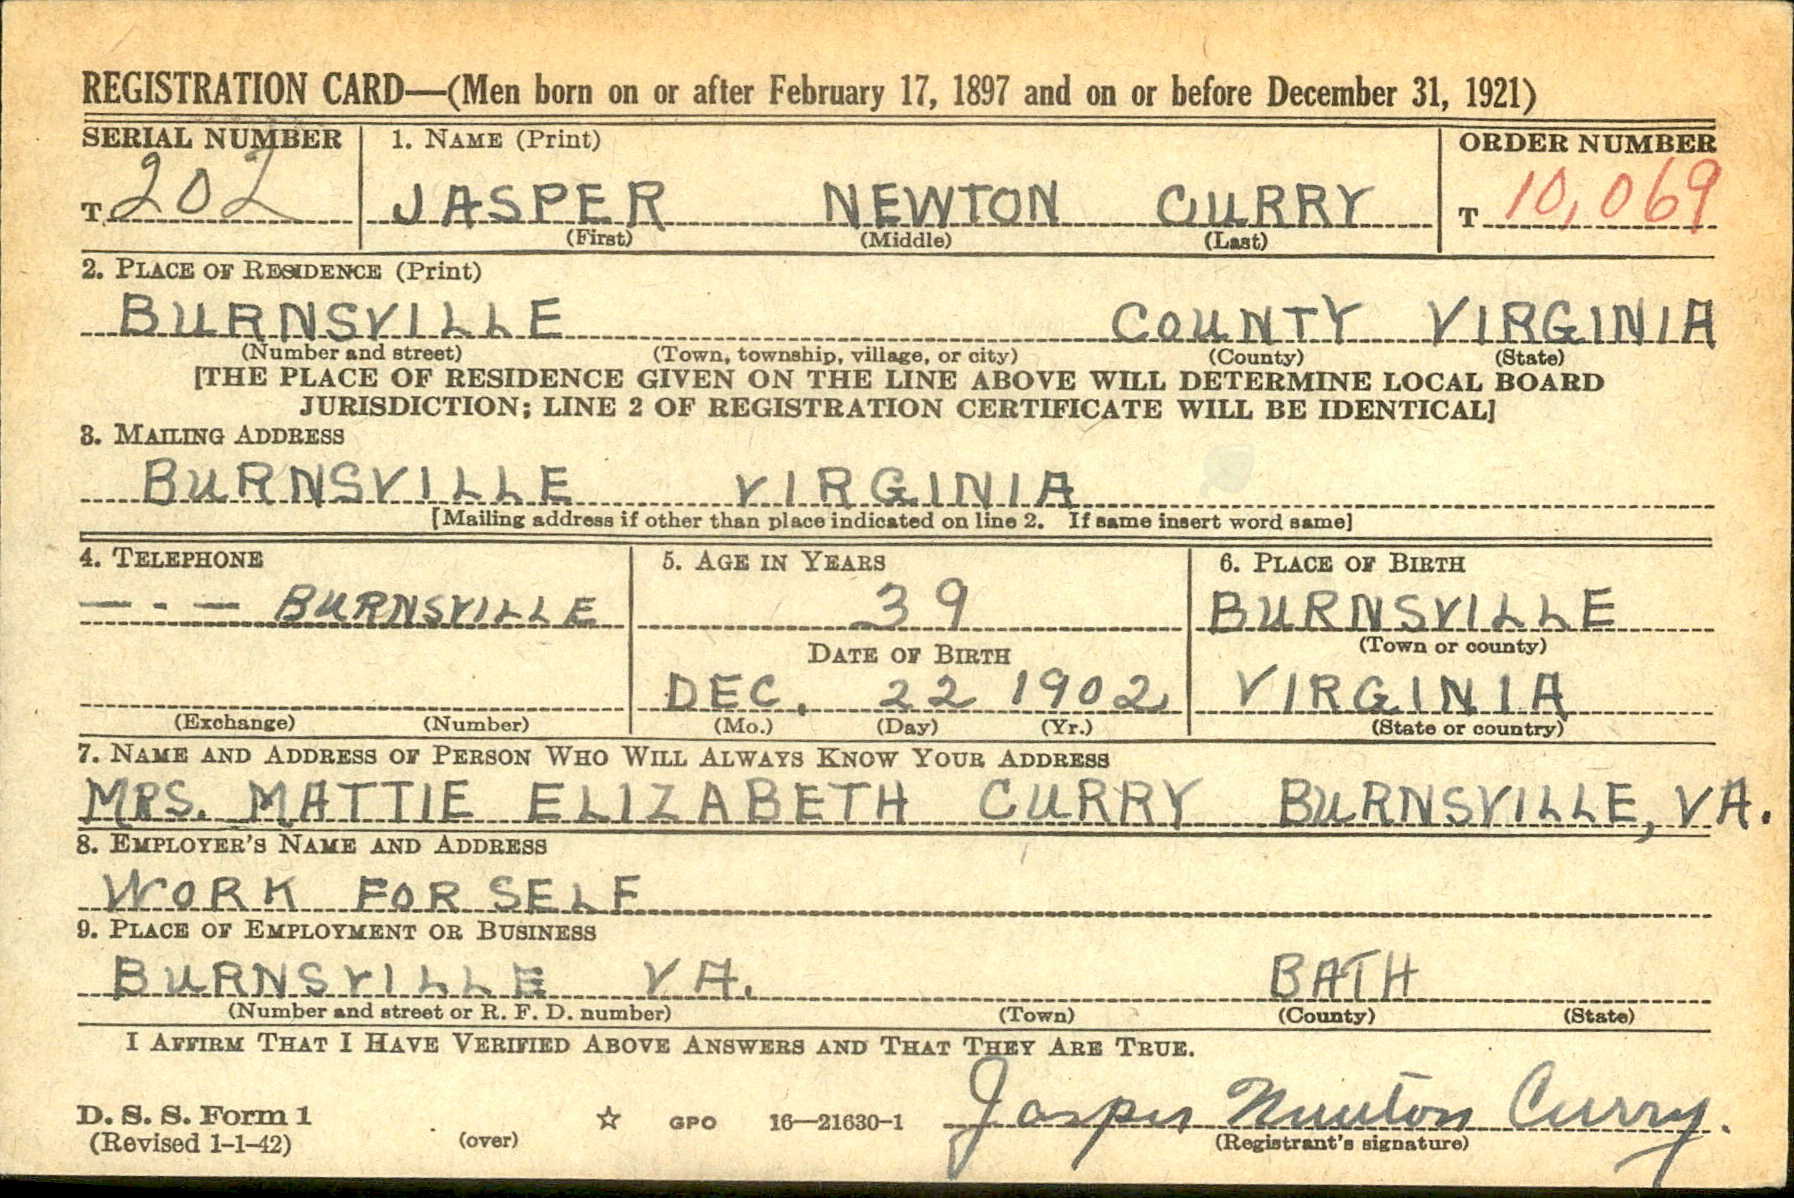 REGISTRATION CARD—(Men born on or after February 17, 1897 and on or before December 31, 1921)
SERIAL NUMBER 1. NAME (Print) ORDER NUMBER
T 202 JASPER NEWTON CURRY T 10,069
(First) (Middle) (Last)
2. PLACE OF RESIDENCE (Print)
BURNSVILLE COUNTY VIRGINIA
(Number and street) (Town, township, village, or city) (County) (State)
[THE PLACE OF RESIDENCE GIVEN ON THE LINE ABOVE WILL DETERMINE LOCAL BOARD
JURISDICTION; LINE 2 OF REGISTRATION CERTIFICATE WILL BE IDENTICAL]
3. MAILING ADDRESS
BURNSVILLE VIRGINIA
[Mailing address if other than place indicated on line 2. If same insert word same]
4. TELEPHONE 5. AGE IN YEARS 6. PLACE OF BIRTH
— - — BURNSVILLE 39 BURNSVILLE
DATE OF BIRTH (Town or county)
DEC. 22 1902 VIRGINIA
(Exchange) (Number) (Mo.) (Day) (Yr.) (State or country)
7. NAME AND ADDRESS OF PERSON WHO WILL ALWAYS KNOW YOUR ADDRESS
MRS. MATTIE ELIZABETH CURRY BURNSVILLE, VA.
8. EMPLOYER'S NAME AND ADDRESS
WORK FOR SELF
9. PLACE OF EMPLOYMENT OR BUSINESS
BURNSVILLE VA. BATH
(Number and street or R. F. D. number) (Town) (County) (State)
I AFFIRM THAT I HAVE VERIFIED ABOVE ANSWERS AND THAT THEY ARE TRUE.
D. S. S. Form 1 ☆ GPO 16—21630-1 Jasper Newton Curry.
(Revised 1-1-42) (over) (Registrant's signature)